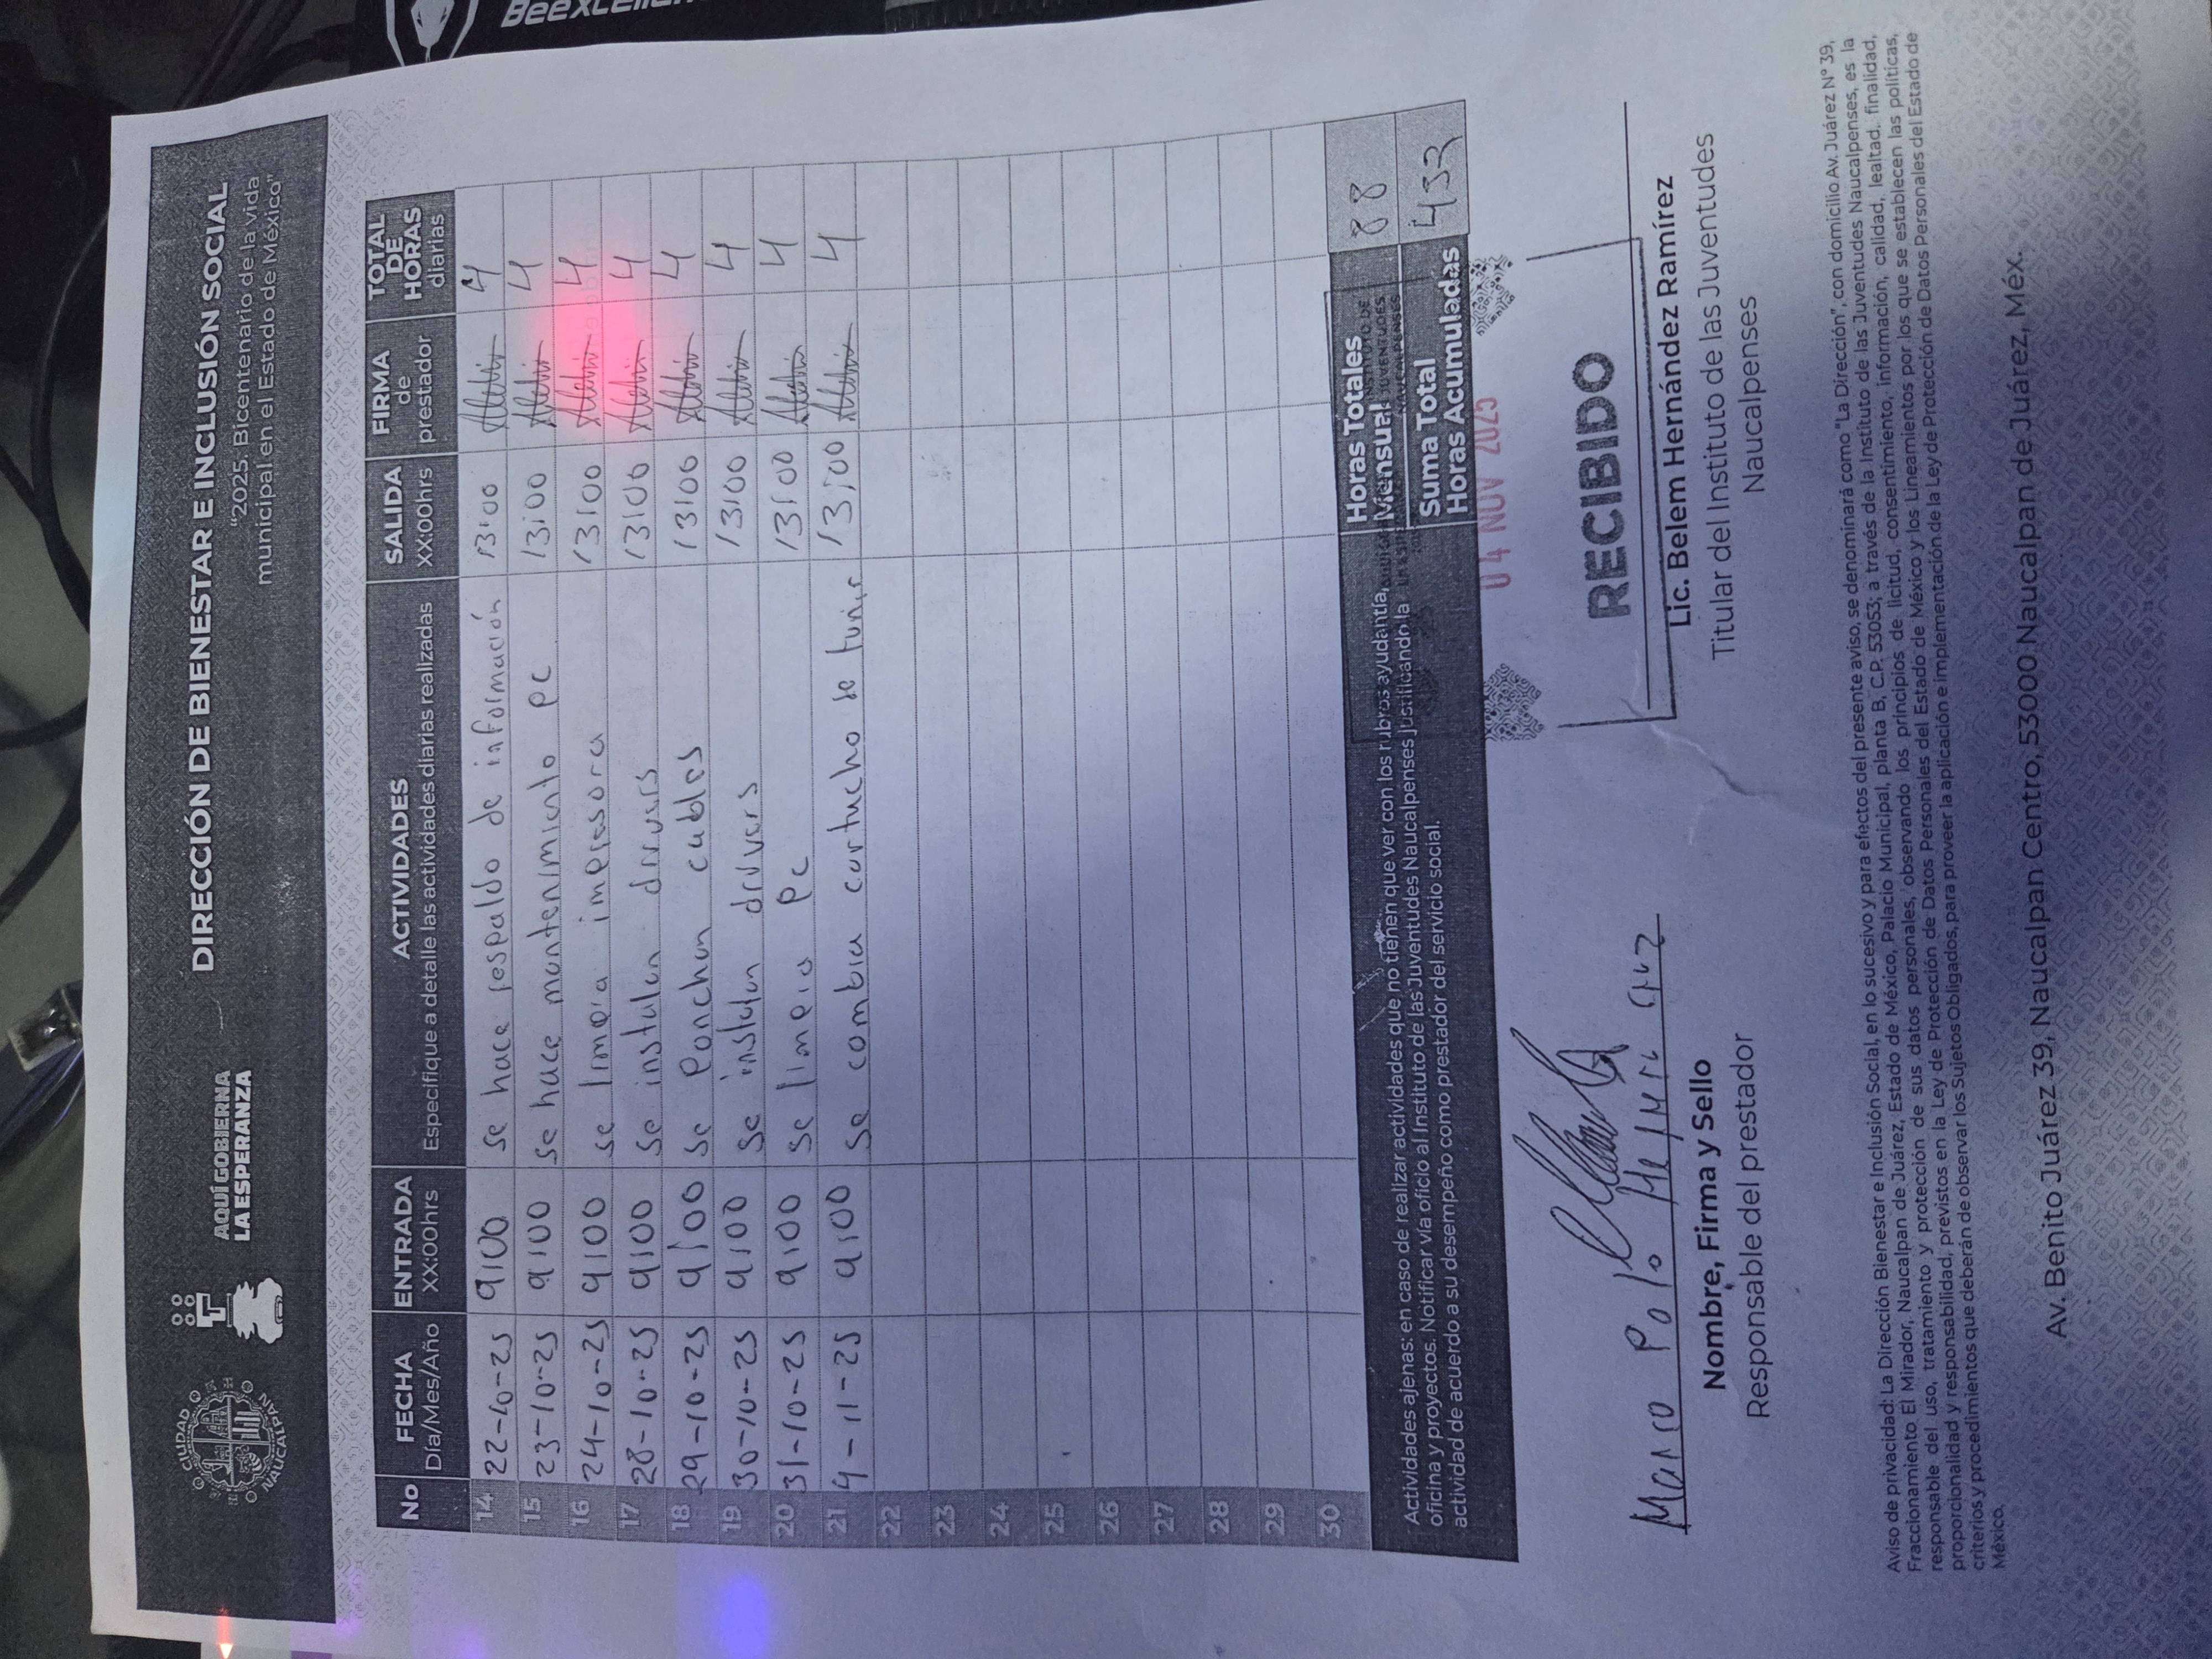 BeeXcellen
CIUDAD
NAUCALPAN
AQUÍ GOBIERNA
LA ESPERANZA
DIRECCIÓN DE BIENESTAR E INCLUSIÓN SOCIAL
"2025. Bicentenario de la vida
municipal en el Estado de México"
No FECHA Día/Mes/Año ENTRADA XX:00hrs ACTIVIDADES Especifique a detalle las actividades diarias realizadas SALIDA XX:00hrs FIRMA de prestador TOTAL DE HORAS diarias
14 22-10-25 9:00 se hace respaldo de información 13:00 4
15 23-10-25 9:00 se hace mantenimiento PC 13:00 4
16 24-10-25 9:00 se limpia impresora 13:00 4
17 28-10-25 9:00 se instalan drivers 13:00 4
18 29-10-25 9:00 se Ponchan cables 13:00 4
19 30-10-25 9:00 se instalan drivers 13:00 4
20 31-10-25 9:00 se limpia PC 13:00 4
21 4-11-25 9:00 se cambia cartucho de 13:00 4
22
23
24
25
26
27
28
29
30
Horas Totales
Mensual 88
Suma Total
Horas Acumuladas 432
Actividades ajenas: en caso de realizar actividades que no tienen que ver con los rubros ayudantía,
oficina y proyectos. Notificar vía oficio al Instituto de las Juventudes Naucalpenses justificando la
actividad de acuerdo a su desempeño como prestador del servicio social.
INSTITUTO DE
JUVENTUDES
NAUCALPENSES
04 NOV 2025
RECIBIDO
Marco Polo
Nombre, Firma y Sello
Responsable del prestador
Lic. Belem Hernández Ramírez
Titular del Instituto de las Juventudes
Naucalpenses
Aviso de privacidad: La Dirección Bienestar e Inclusión Social, en lo sucesivo y para efectos del presente aviso, se denominará como "La Dirección", con domicilio Av. Juárez N° 39,
Fraccionamiento El Mirador, Naucalpan de Juárez, Estado de México, Palacio Municipal, planta B, C.P. 53053; a través de la Instituto de las Juventudes Naucalpenses, es la
responsable del uso, tratamiento y protección de sus datos personales, observando los principios de licitud, consentimiento, información, calidad, lealtad, finalidad,
proporcionalidad y responsabilidad, previstos en la Ley de Protección de Datos Personales del Estado de México y los Lineamientos por los que se establecen las políticas,
criterios y procedimientos que deberán de observar los Sujetos Obligados, para proveer la aplicación e implementación de la Ley de Protección de Datos Personales del Estado de
México.
Av. Benito Juárez 39, Naucalpan Centro, 53000 Naucalpan de Juárez, Méx.